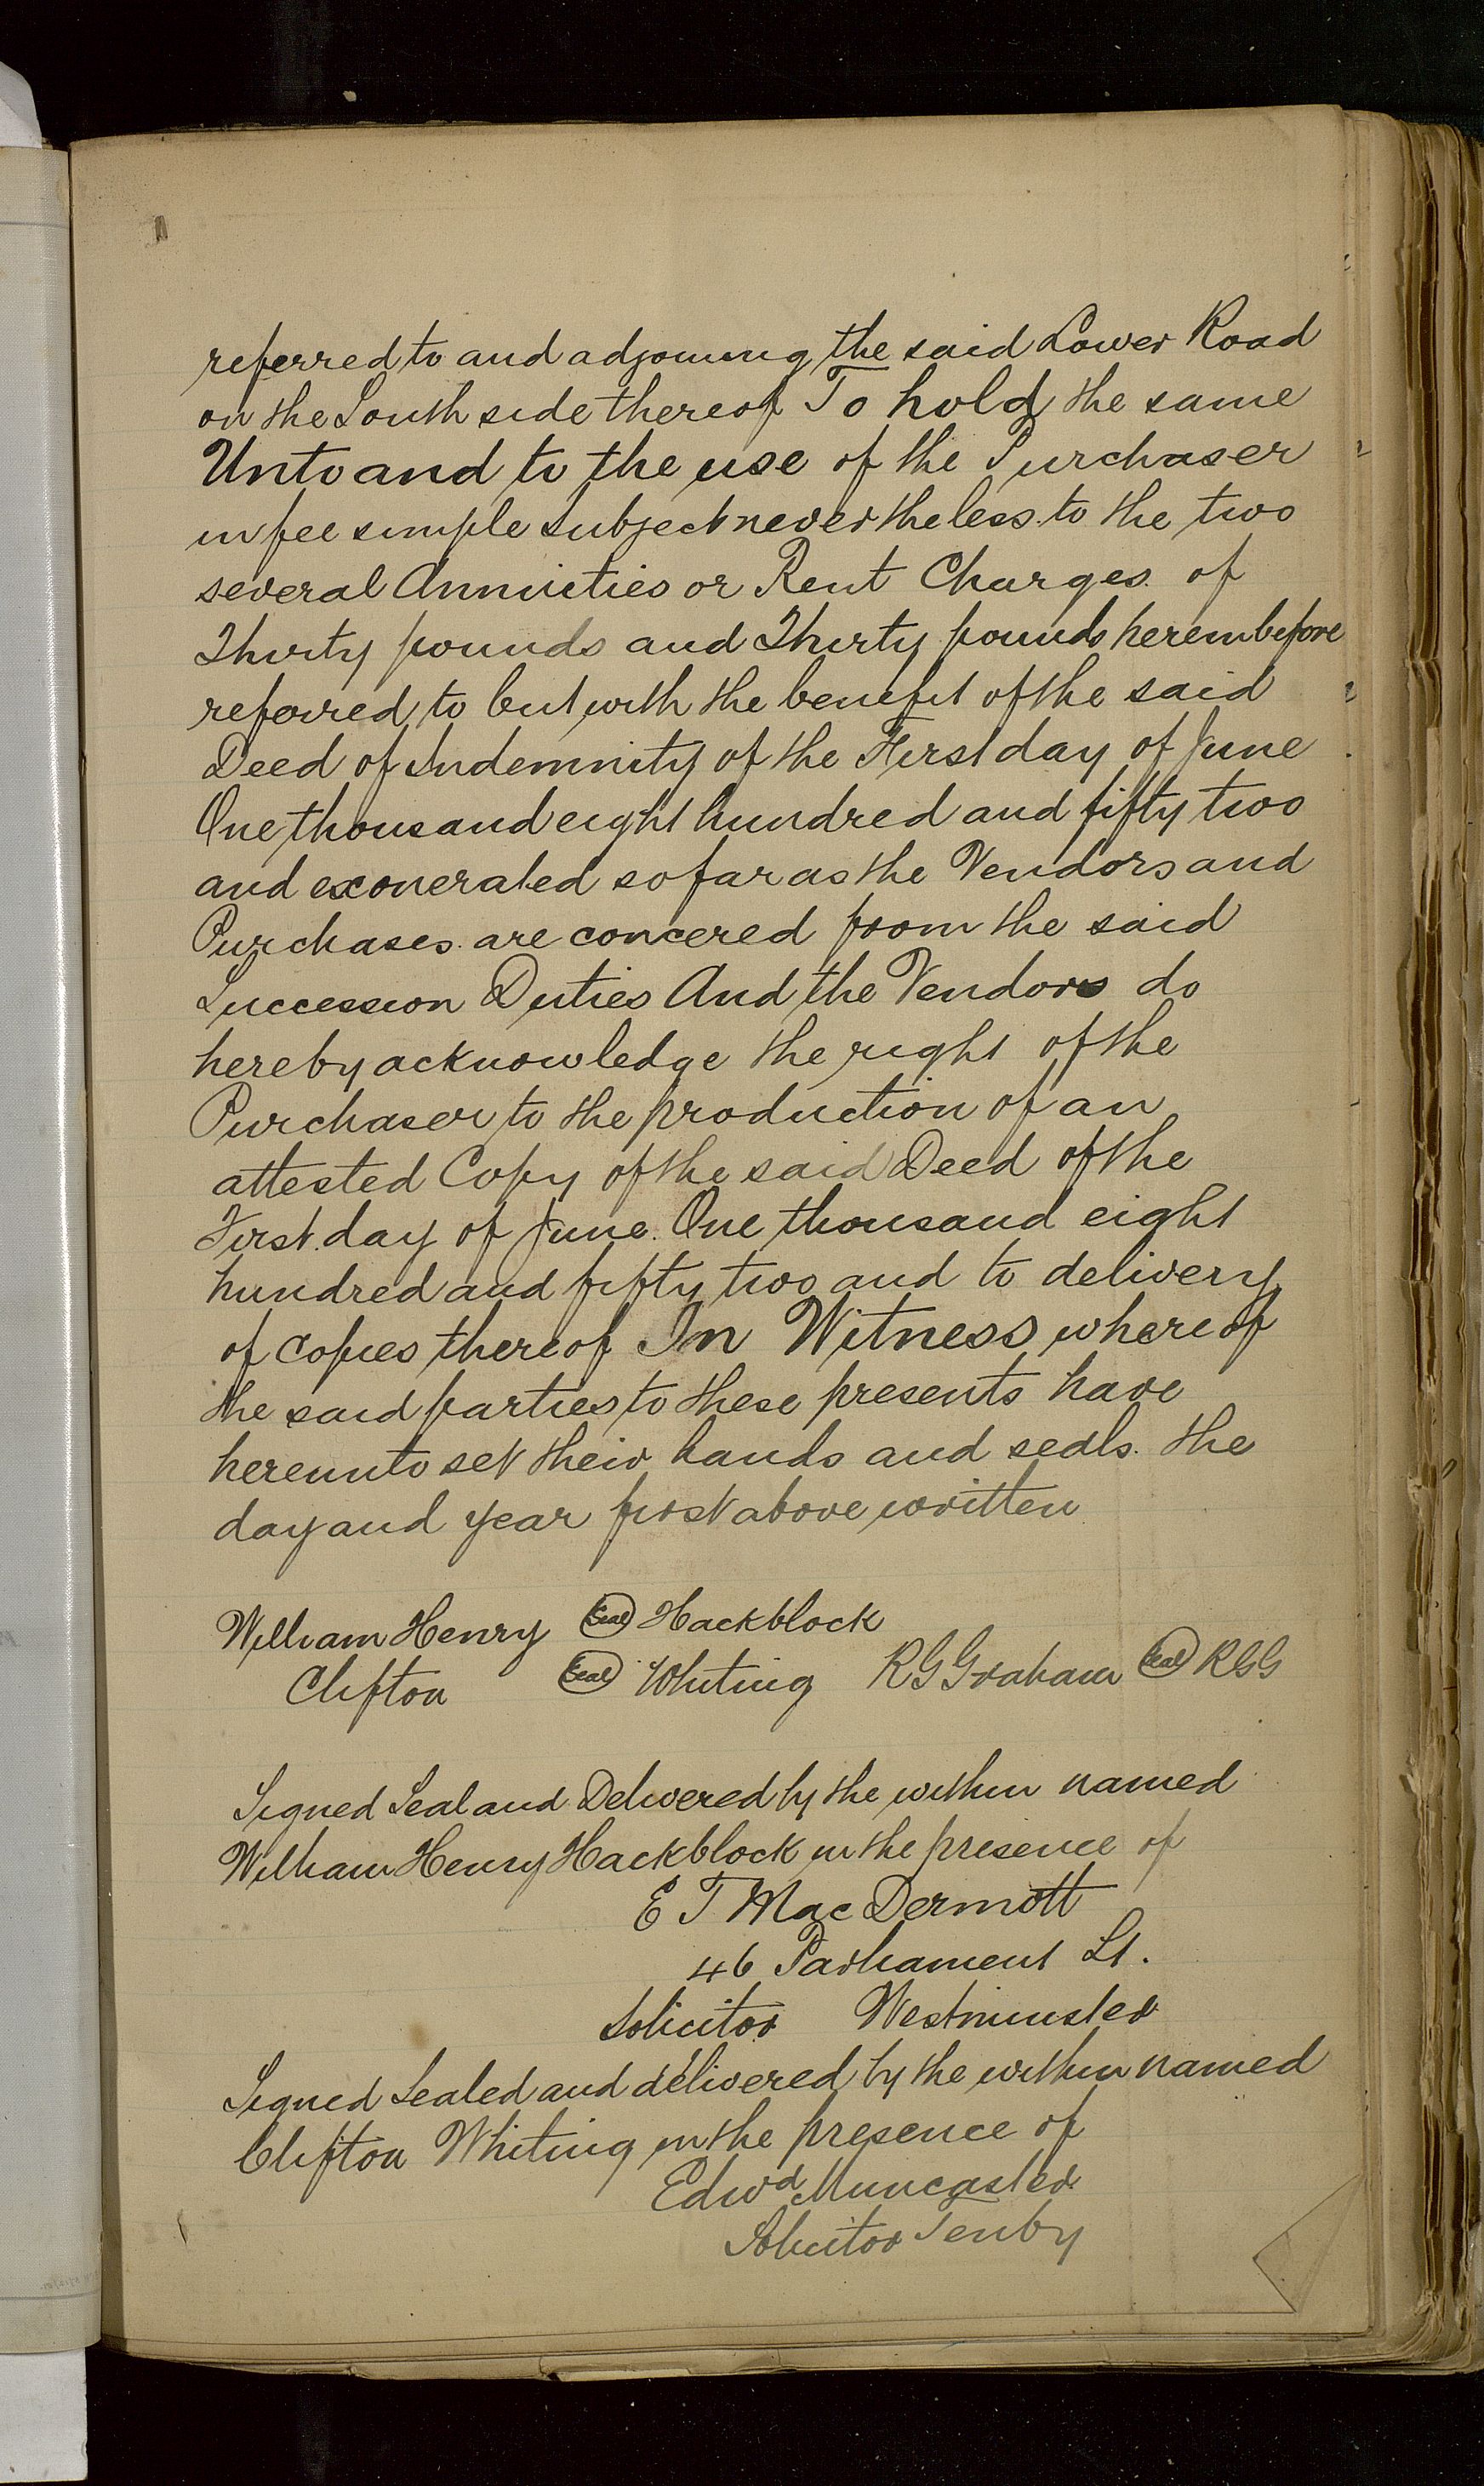 referred to and adjoining the said Lower Road
on the South side thereof To hold the same
Unto and to the use of the Purchaser
in fee simple subject nevertheless to the two
several Annuities or Rent Charges of
Thirty pounds and Thirty pounds hereinbefore
referred to but with the benefit of the said
Deed of Indemnity of the First day of June
One thousand eight hundred and fifty two
and exonerated so far as the Vendors and
Purchases are concered from the said
Succession Duties And the Vendors do
hereby acknowledge the right of the
Purchaser to the production of an
attested Copy of the said Deed of the
First day of June One thousand eight
hundred and fifty two and to delivery
of copies thereof In Witness whereof
the said parties to these presents have
hereunto set their hands and seals the
day and year first above written
William Henry Seal Hackblock
Clifton Seal Whiting R G Graham Seal RGG
Signed Seal and Delivered by the within named
William Henry Hackblock in the presence of
E T Mac Dermott
46 Parliament St.
Solicitor Westminster
Signed Sealed and delivered by the within named
Clifton Whiting in the presence of
Edwd Muncaster
Solicitor Tenby